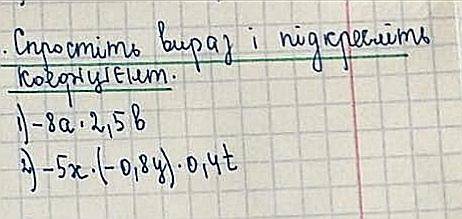 . Спростіть вираз і підкресліть
коефіцієнт.
1) -8a · 2,5b
2) -5x · (-0,8y) · 0,4t